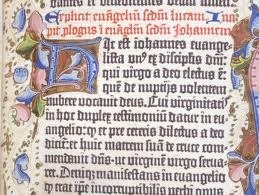 dantes et benedicentes deum amen.
Explicit euangeliũ scdm lucam Inci
pit plogus ĩ euangeliũ scdm Johannem
Hic est iohannes euange-
lista vnꝰ ex discipulis dñi
qui virgo a deo electus ẽ:
quẽ de nuptijs volentem
nubere vocauit deus. Cui virginitatis
in hoc duplex testimoniũ datur in eu-
angelio: ꝙ et pre ceteris dilectus a deo
dicit̃: et huic matrem suã de cruce com-
mendauit dñs: ut virginẽ virgo serua-
ret. Deniqꝫ manifestans in euangelio
ꝙ erat ipse incorruptibilis verbi opus